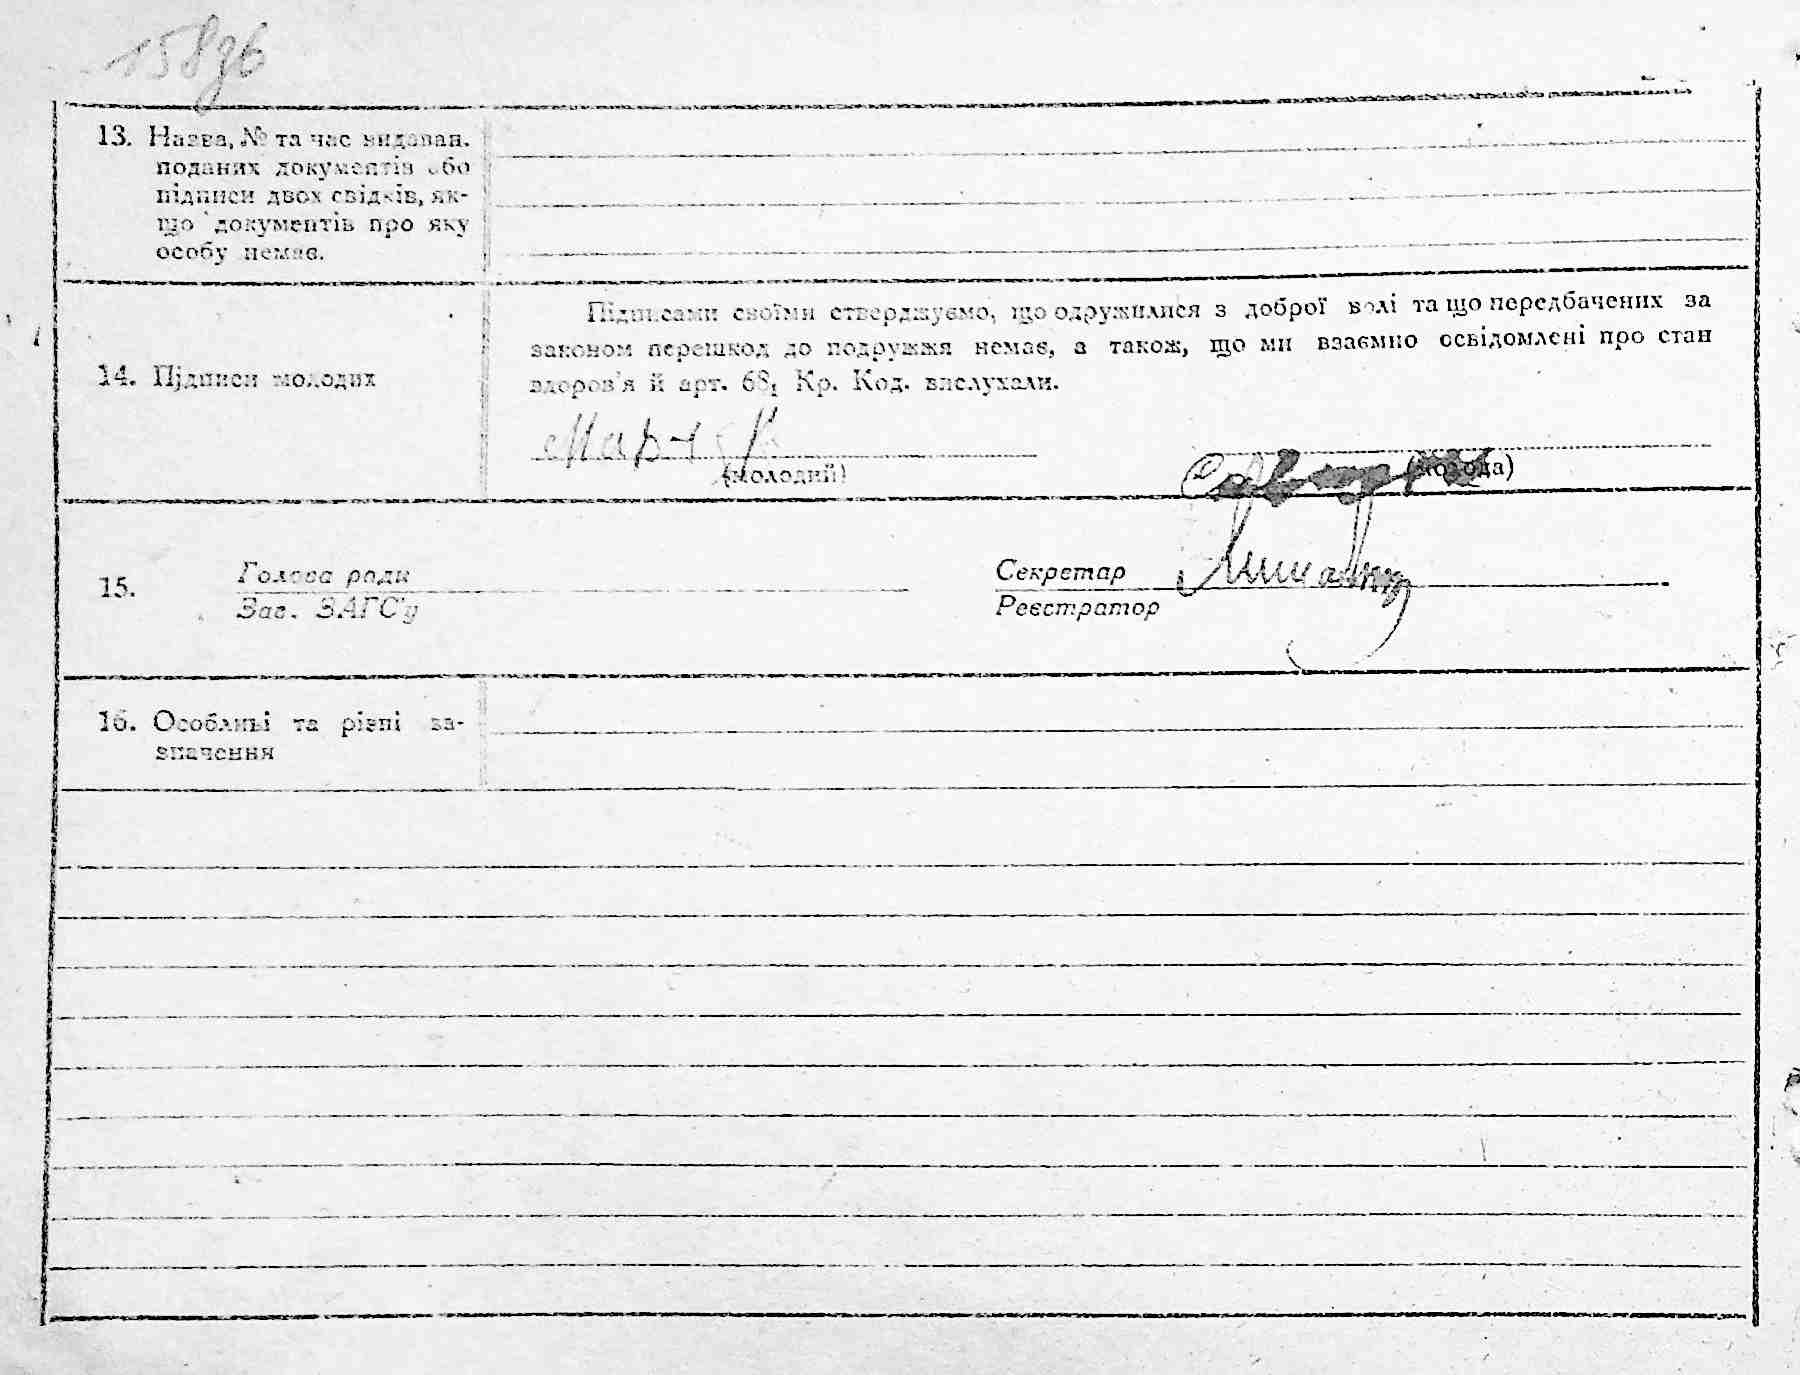 158зв
13. Назва, № та час видаван.
поданих документів або
підписи двох свідків, як-
що документів про яку
особу немає.
14. Підписи молодих
Підписами своїми стверджуємо, що одружилися з доброї волі та що передбачених за
законом перешкод до подружжя немає, а також, що ми взаємно освідомлені про стан
здоров'я й арт. 68₁ Кр. Код. вислухали.
(молодий)
(молода)
15. Голова ради
Зав. ЗАГС'у
Секретар
Реєстратор
16. Особливі та різні за-
значення